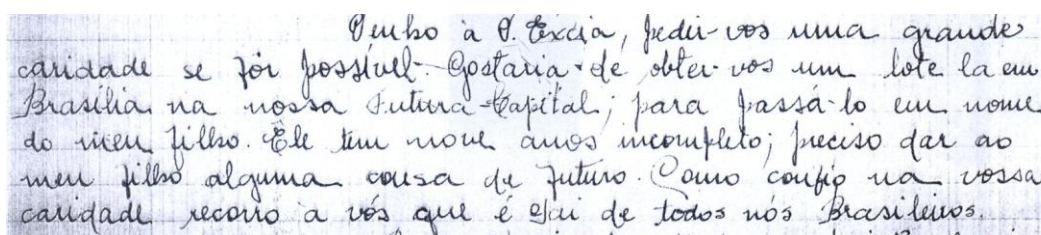 Venho à V. Excia, pedir-vos uma grande
caridade se fôr possível. Gostaria de obter-vos um lote la em
Brasilia na nossa Futura Capital; para passá-lo em nome
do meu filho. Êle tem nove anos incompleto; preciso dar ao
meu filho alguma cousa de futuro. Como confio na vossa
caridade recorro a vós que é Pai de todos nós Brasileiros.